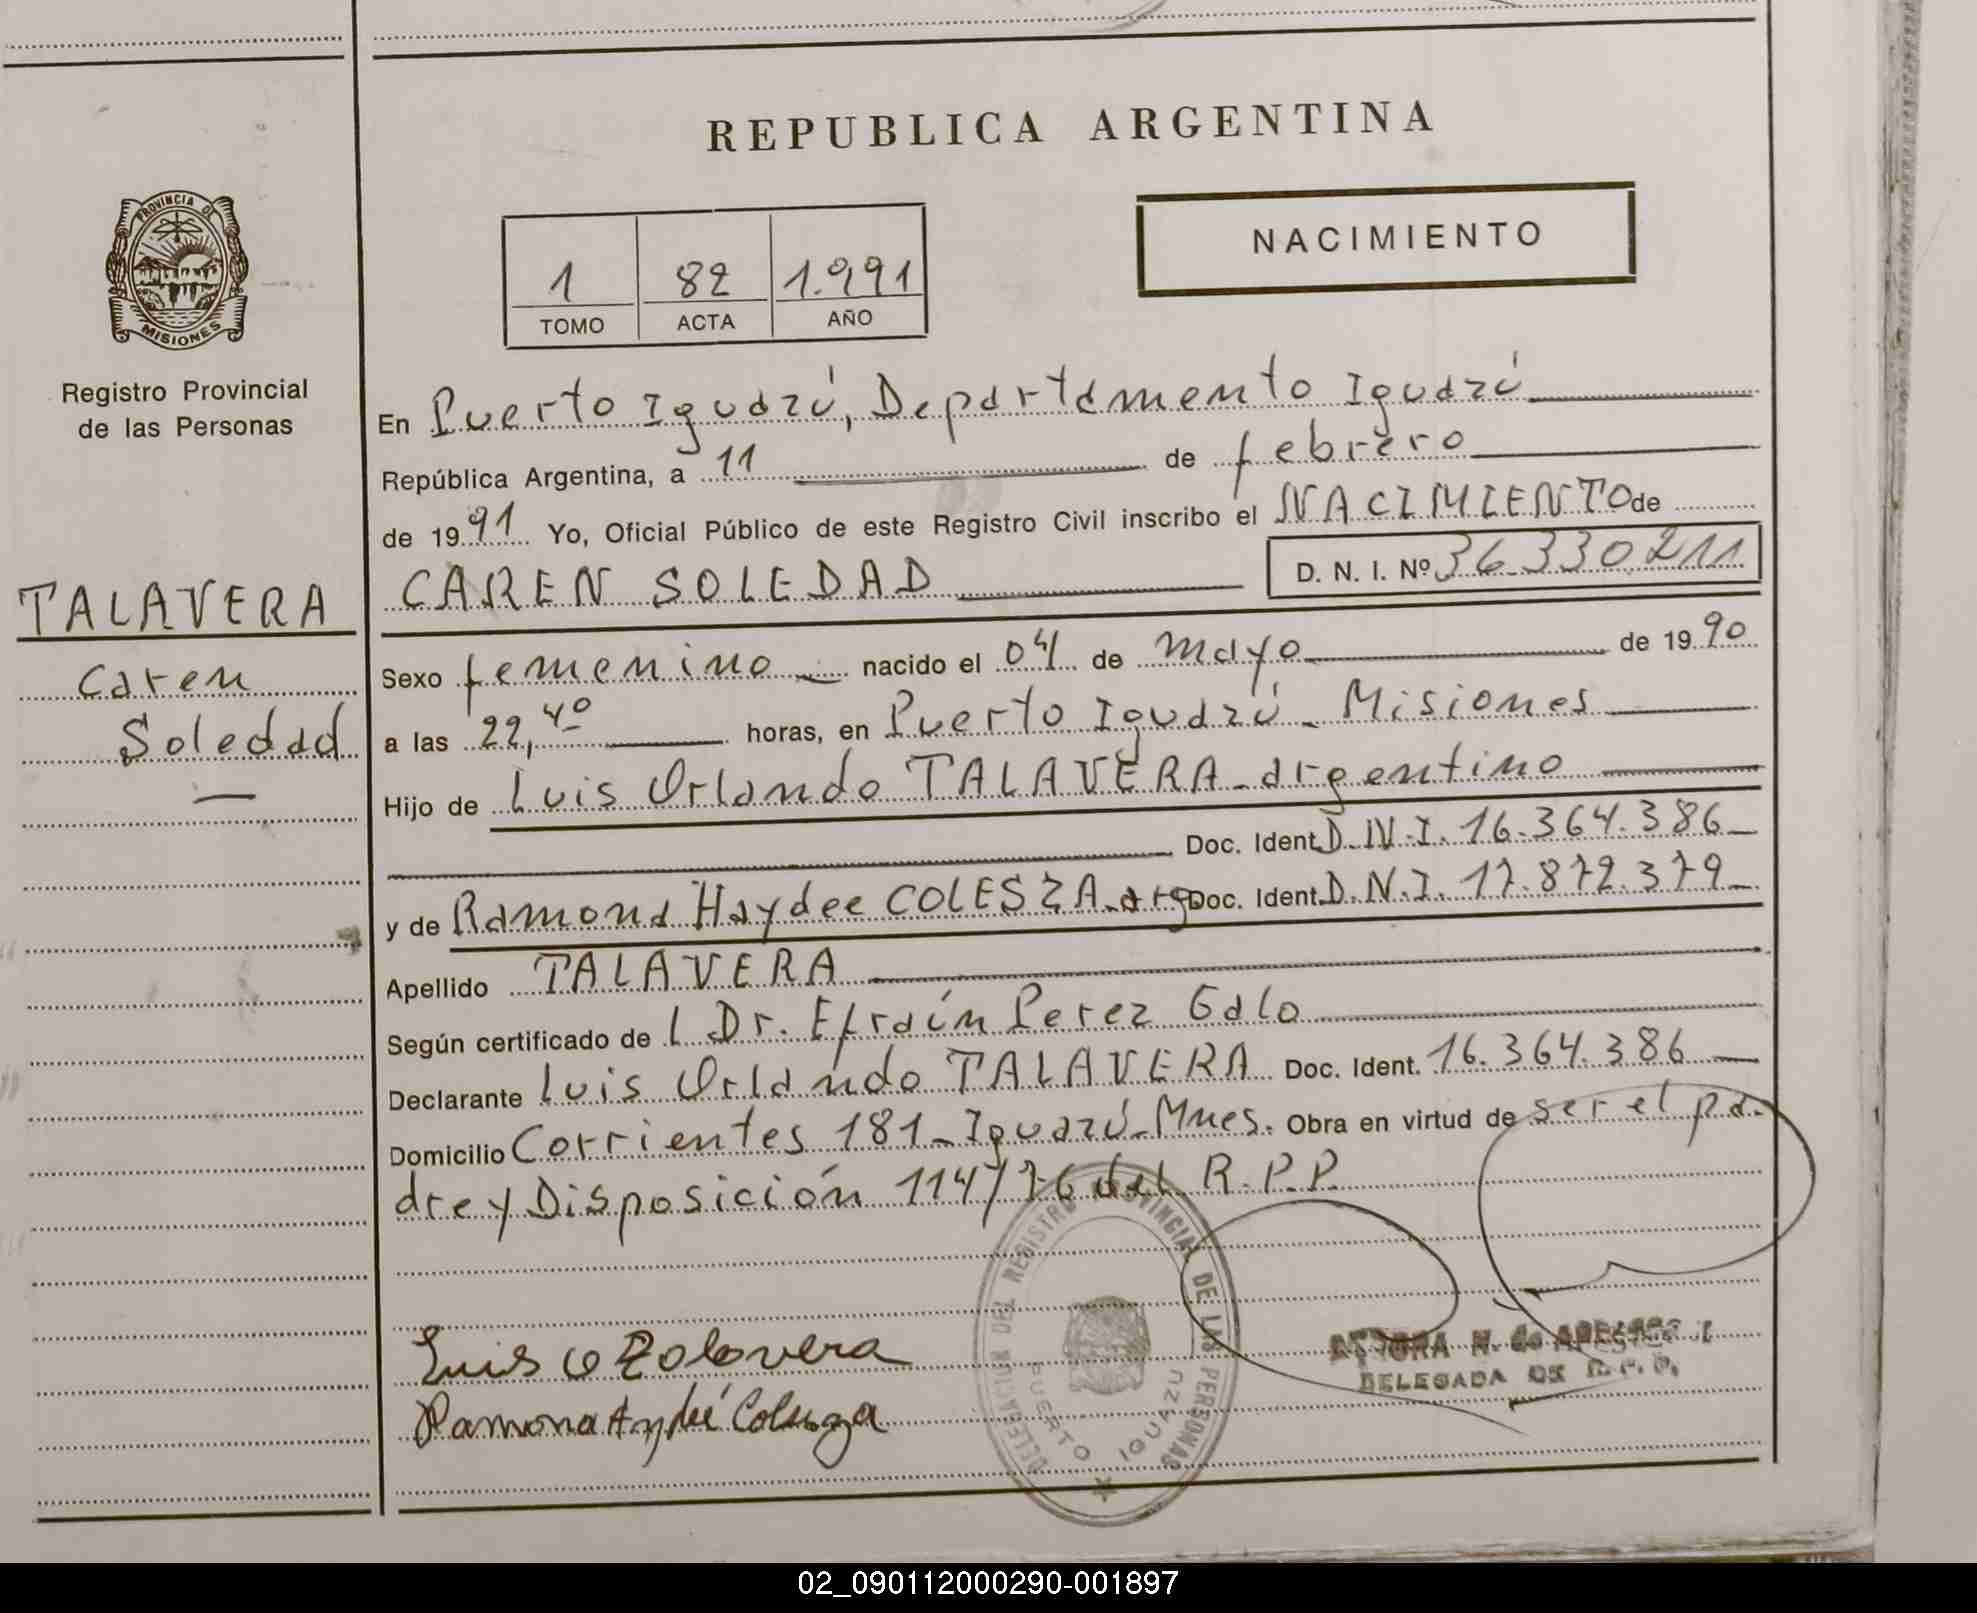 REPUBLICA ARGENTINA
PROVINCIA DE
MISIONES
Registro Provincial
de las Personas
NACIMIENTO
1 82 1.991
TOMO ACTA AÑO
En Puerto Iguazú, Departamento Iguazú
República Argentina, a 11 de febrero
de 1991 Yo, Oficial Público de este Registro Civil inscribo el NACIMIENTO de
CAREN SOLEDAD D. N. I. Nº 36.330.211
TALAVERA
Caren
Soledad
Sexo femenino nacido el 04 de mayo de 1990
a las 22,40 horas, en Puerto Iguazú - Misiones
Hijo de Luis Orlando TALAVERA - argentino
Doc. Ident. D.N.I. 16.364.386
y de Ramona Haydee COLESZA - arg Doc. Ident. D.N.I. 17.872.379
Apellido TALAVERA
Según certificado de l Dr. Efraín Perez Galo
Declarante Luis Orlando TALAVERA Doc. Ident. 16.364.386
Domicilio Corrientes 181 - Iguazú - Mnes. Obra en virtud de ser el pa-
dre y Disposición 114/76 del R.P.P.
Luis O Talavera
Ramona Aydeé Colesza
DELEGACION DEL REGISTRO PROVINCIAL DE LAS PERSONAS
PUERTO IGUAZU
DELEGADA DE R.P.P.
02_090112000290-001897